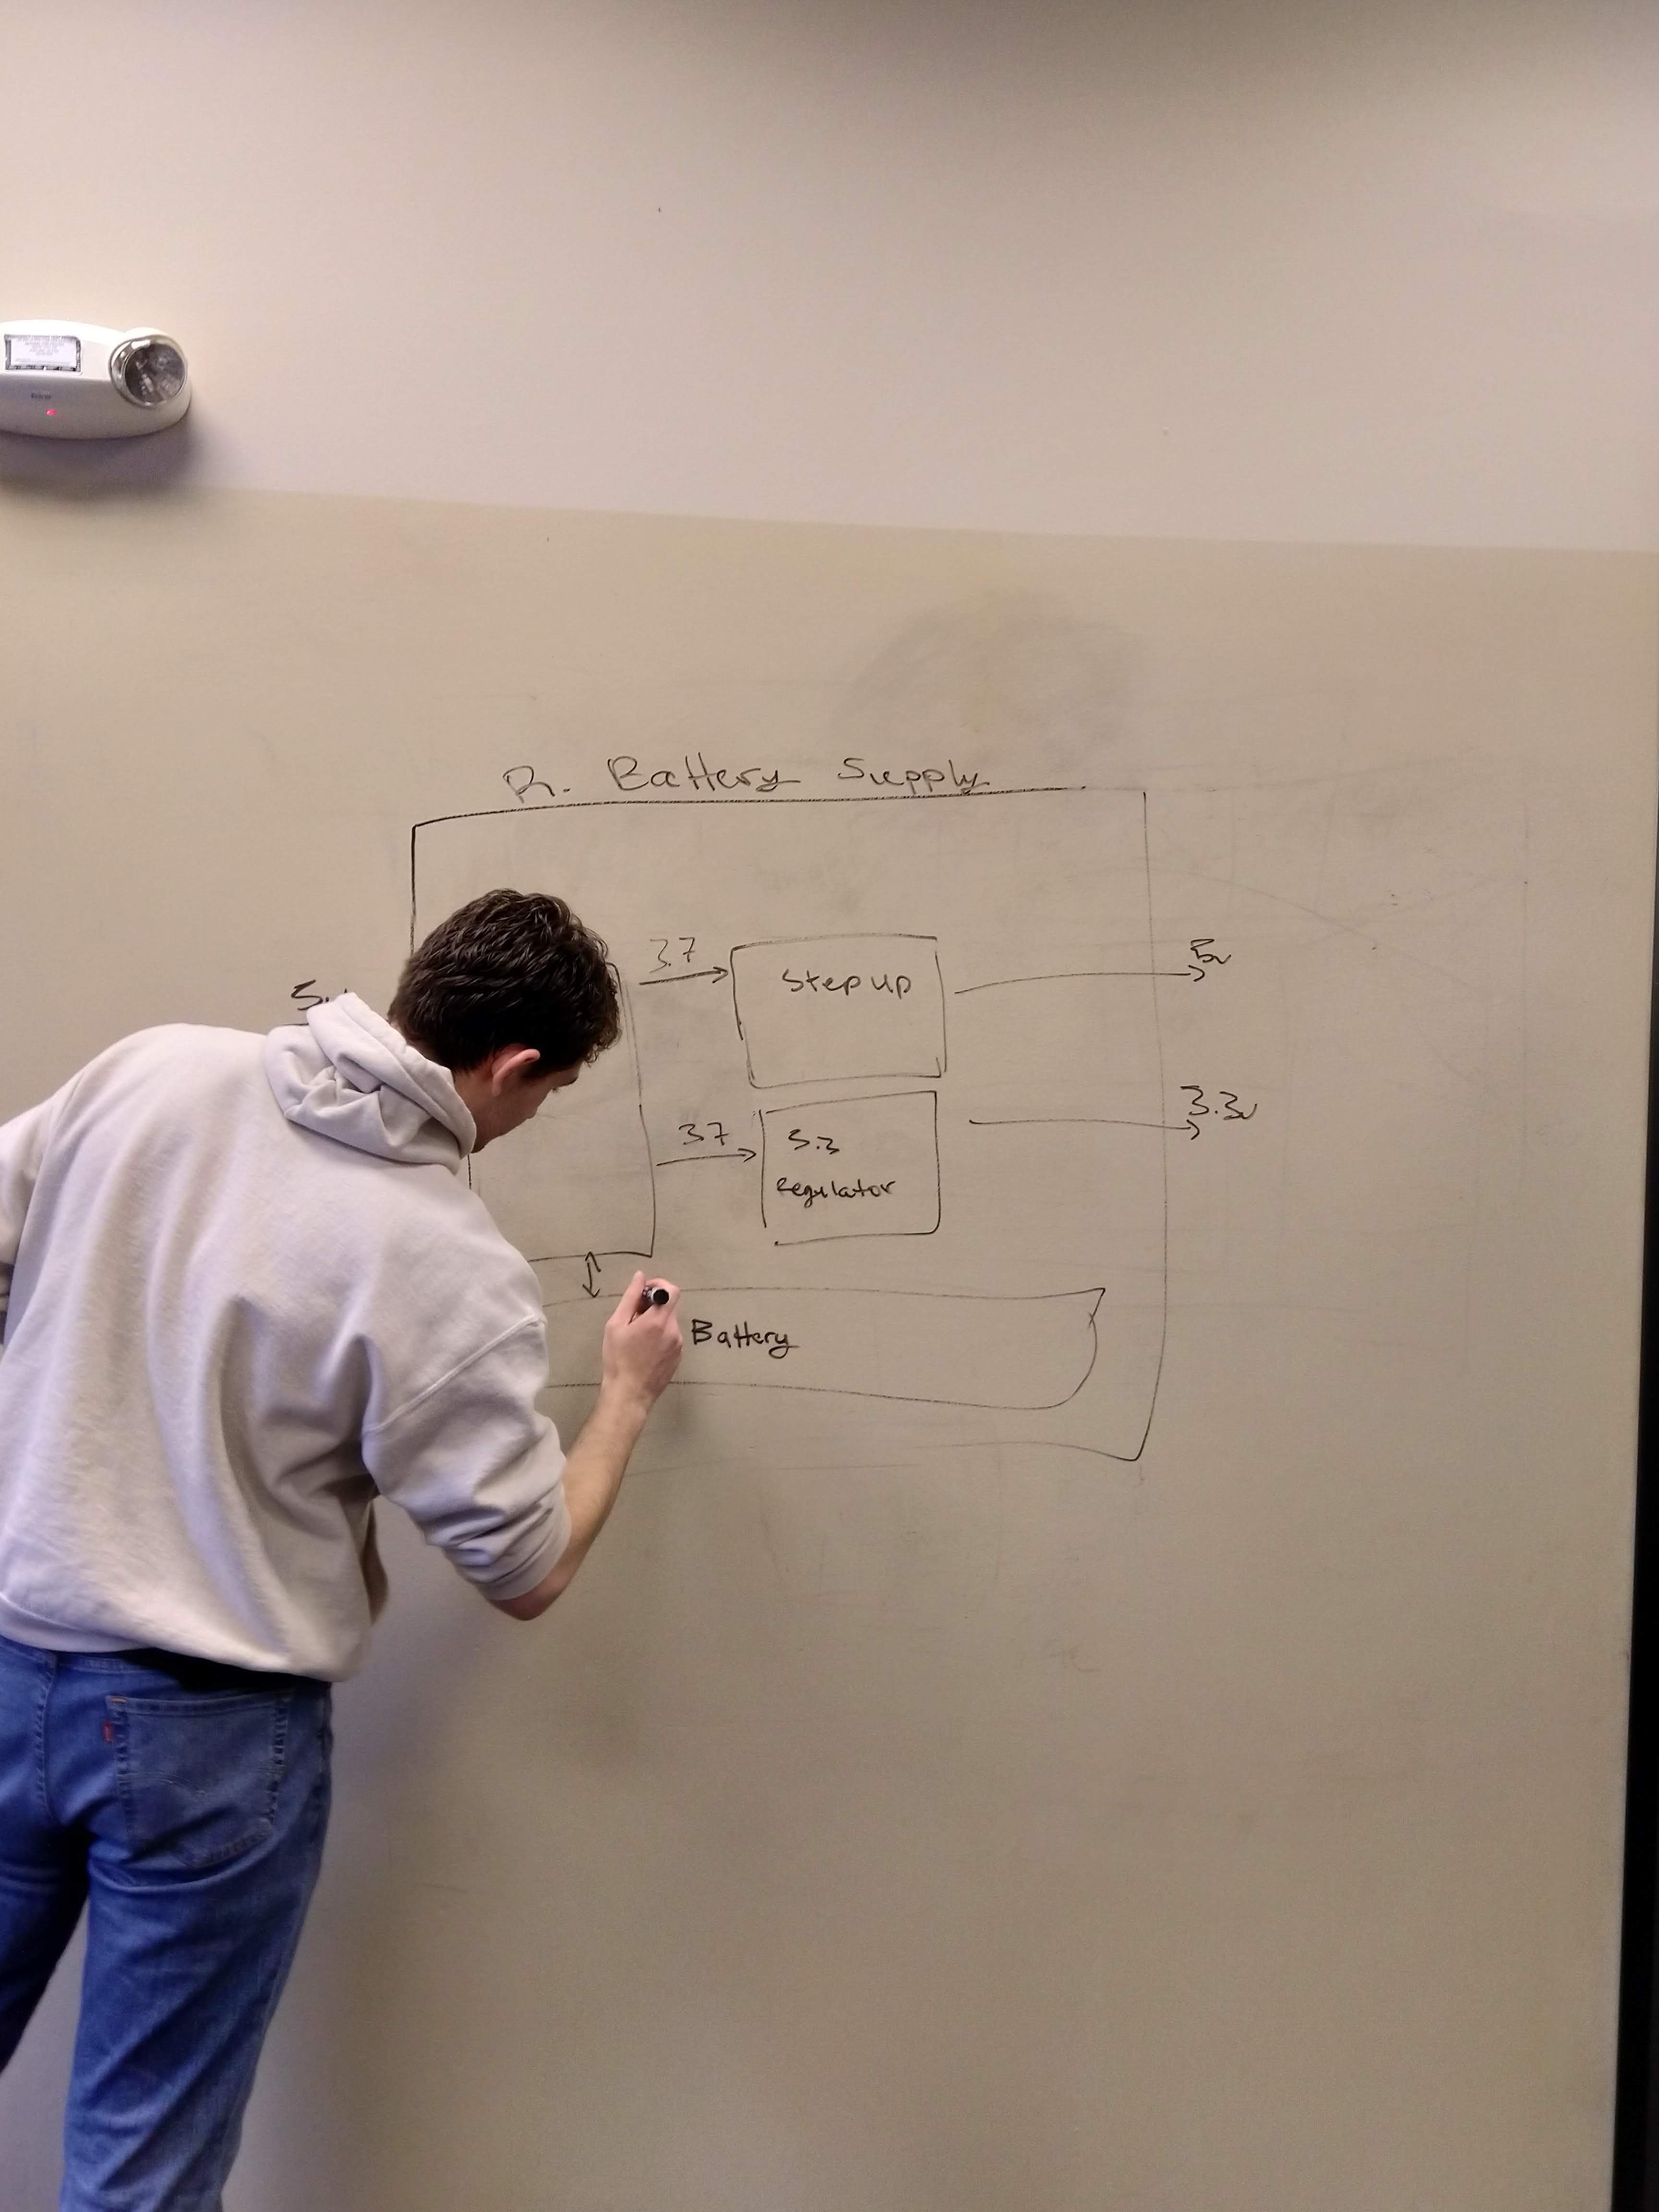 R. Battery Supply
3.7
Step up
5v
3.7
3.3
Regulator
3.3v
Battery